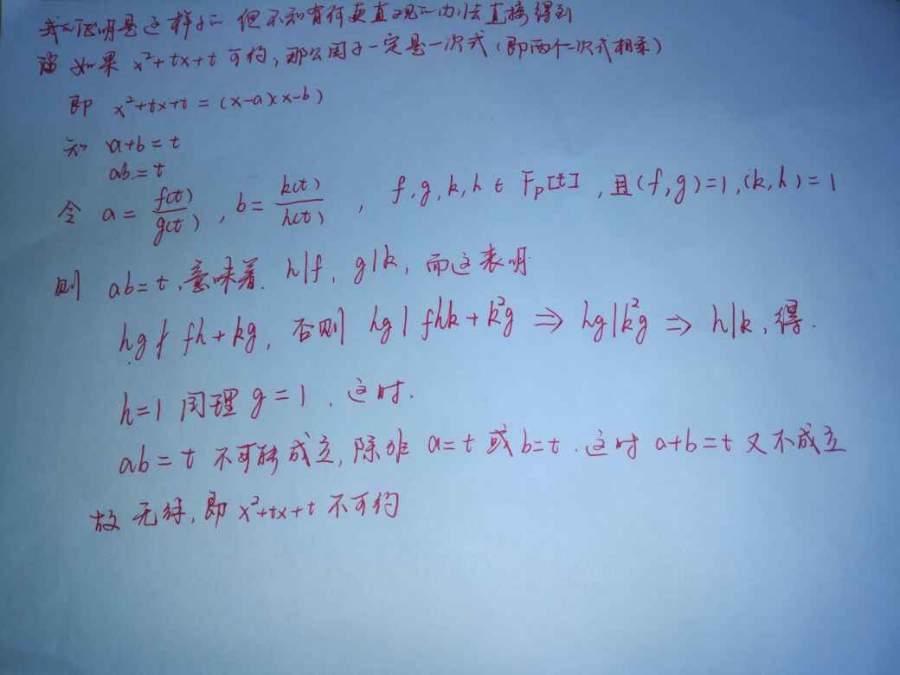 我的证明是这样子的 但不知有何更直观的办法直接得到
如果 x²+tx+t 可约，那么因子一定是一次式（即两个一次式相乘）
即 x²+tx+t = (x-a)(x-b)
知 a+b=t
ab=t
令 a = f(t)/g(t) , b = k(t)/h(t) , f, g, k, h ∈ F_p[t] , 且 (f,g)=1, (k,h)=1
则 ab=t, 意味着, h|f, g|k, 而这表明
hg∤fh+kg, 否则 hg | fhk+k²g ⇒ hg|k²g ⇒ h|k, 得.
h=1 同理 g=1. 这时.
ab=t 不可能成立, 除非 a=t 或 b=t. 这时 a+b=t 又不成立
故 无解, 即 x²+tx+t 不可约